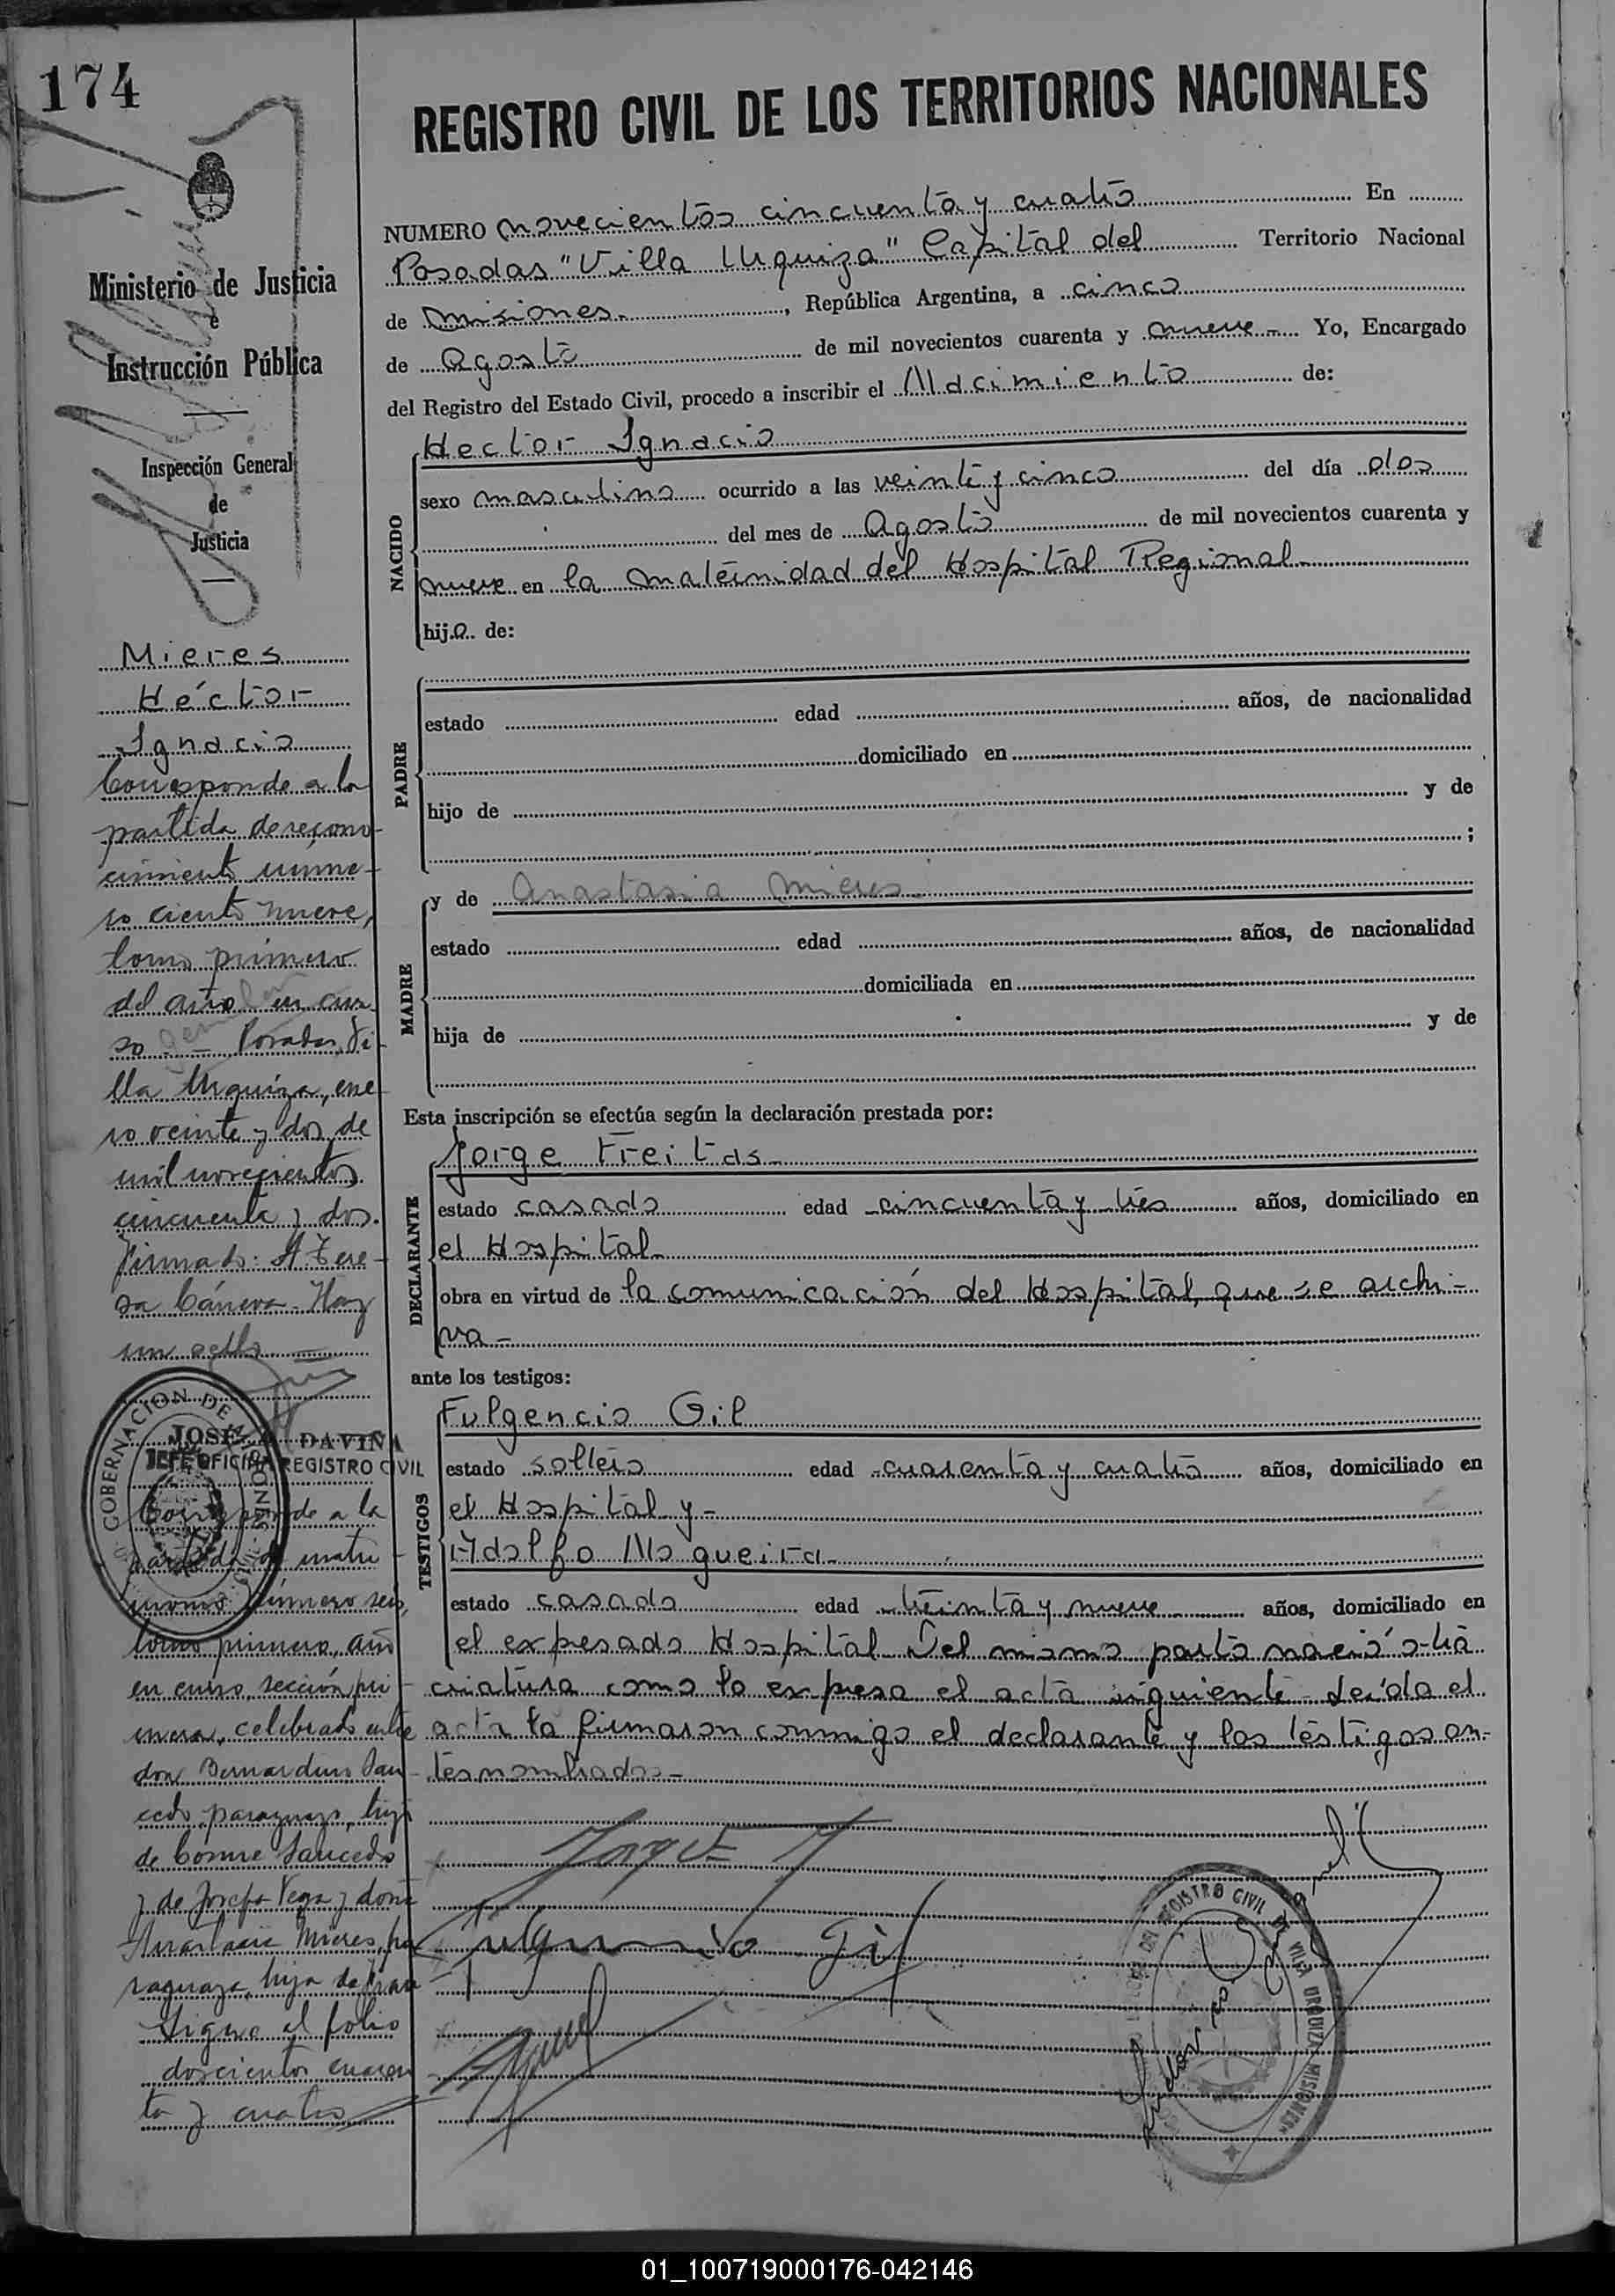 174
REGISTRO CIVIL DE LOS TERRITORIOS NACIONALES
Ministerio de Justicia
e
Instrucción Pública
Inspección General
de
Justicia
NUMERO novecientos cincuenta y cuatro En
Posadas "Villa Urquiza" Capital del Territorio Nacional
de Misiones. , República Argentina, a cinco
de Agosto de mil novecientos cuarenta y nueve - Yo, Encargado
del Registro del Estado Civil, procedo a inscribir el Nacimiento de:
NACIDO
Hector Ignacio
sexo masculino ocurrido a las veinte y cinco del día dos
del mes de Agosto de mil novecientos cuarenta y
nueve en la maternidad del Hospital Regional.
hijo de:
PADRE
estado edad años, de nacionalidad
domiciliado en
hijo de y de
;
MADRE
y de Anastasia Mieres.
estado edad años, de nacionalidad
domiciliada en
hija de y de
Esta inscripción se efectúa según la declaración prestada por:
DECLARANTE
Jorge Freitas.
estado casado edad cincuenta y tres años, domiciliado en
el Hospital.
obra en virtud de la comunicación del Hospital, que se archi-
va-
ante los testigos:
TESTIGOS
Fulgencio Gil
estado soltero edad cuarenta y cuatro años, domiciliado en
el Hospital y-
Adolfo Nogueira.
estado casado edad treinta y nueve años, domiciliado en
el expresado Hospital. Del mismo parto nació otra
criatura como lo expresa el acta siguiente - Leída el
acta la firmaron conmigo el declarante y los testigos an-
tes nombrados-
Jorge F
Fulgencio Gil
REGISTRO CIVIL DE VILLA URQUIZA MISIONES
Mieres
Héctor
Ignacio
Corresponde a la
partida de recono-
cimiento núme-
ro ciento nueve,
tomo primero
del año en cur-
so - Posadas, Vi-
lla Urquiza, ene-
ro veinte y dos de
mil novecientos
cincuenta y dos.
Firmado: A. Tere-
sa Cáneva. Hay
un sello
GOBERNACION DE MISIONES
JOSE DAVIÑA
JEFE OFICINA REGISTRO CIVIL
Corresponde a la
partida de matri-
monio número seis,
tomo primero, año
en curso, sección pri-
mera, celebrado entre
don Bernardino Sau-
cedo, paraguayo, hijo
de Cosme Saucedo
y de Josefa Vega y doña
Anastacia Mieres, pa-
raguaya, hija de
Sigue al folio
doscientos cuaren-
ta y cuatro
01_100719000176-042146